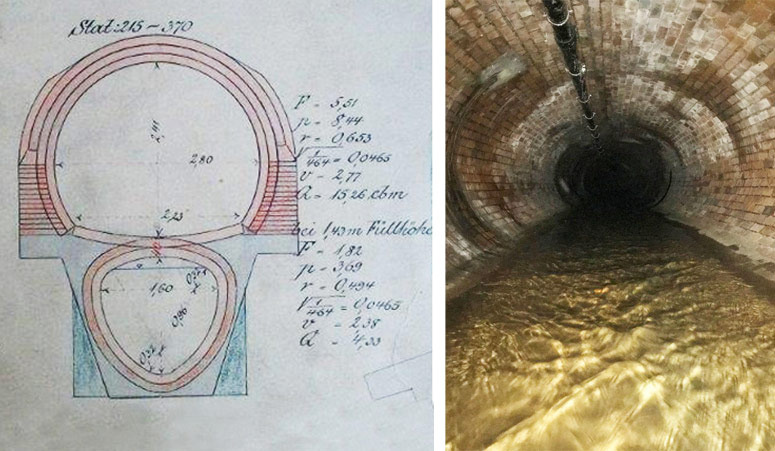 Stat: 215 – 370
2,41
2,80
2,23
1,60
0,96
F = 5,51
p = 8,44
r = 0,653
√1/464 = 0,0465
v = 2,77
Q = 15,26 cbm
bei 1,43 m Füllhöhe
F = 1,82
p = 3,69
r = 0,494
√1/464 = 0,0465
v = 2,38
Q = 4,33